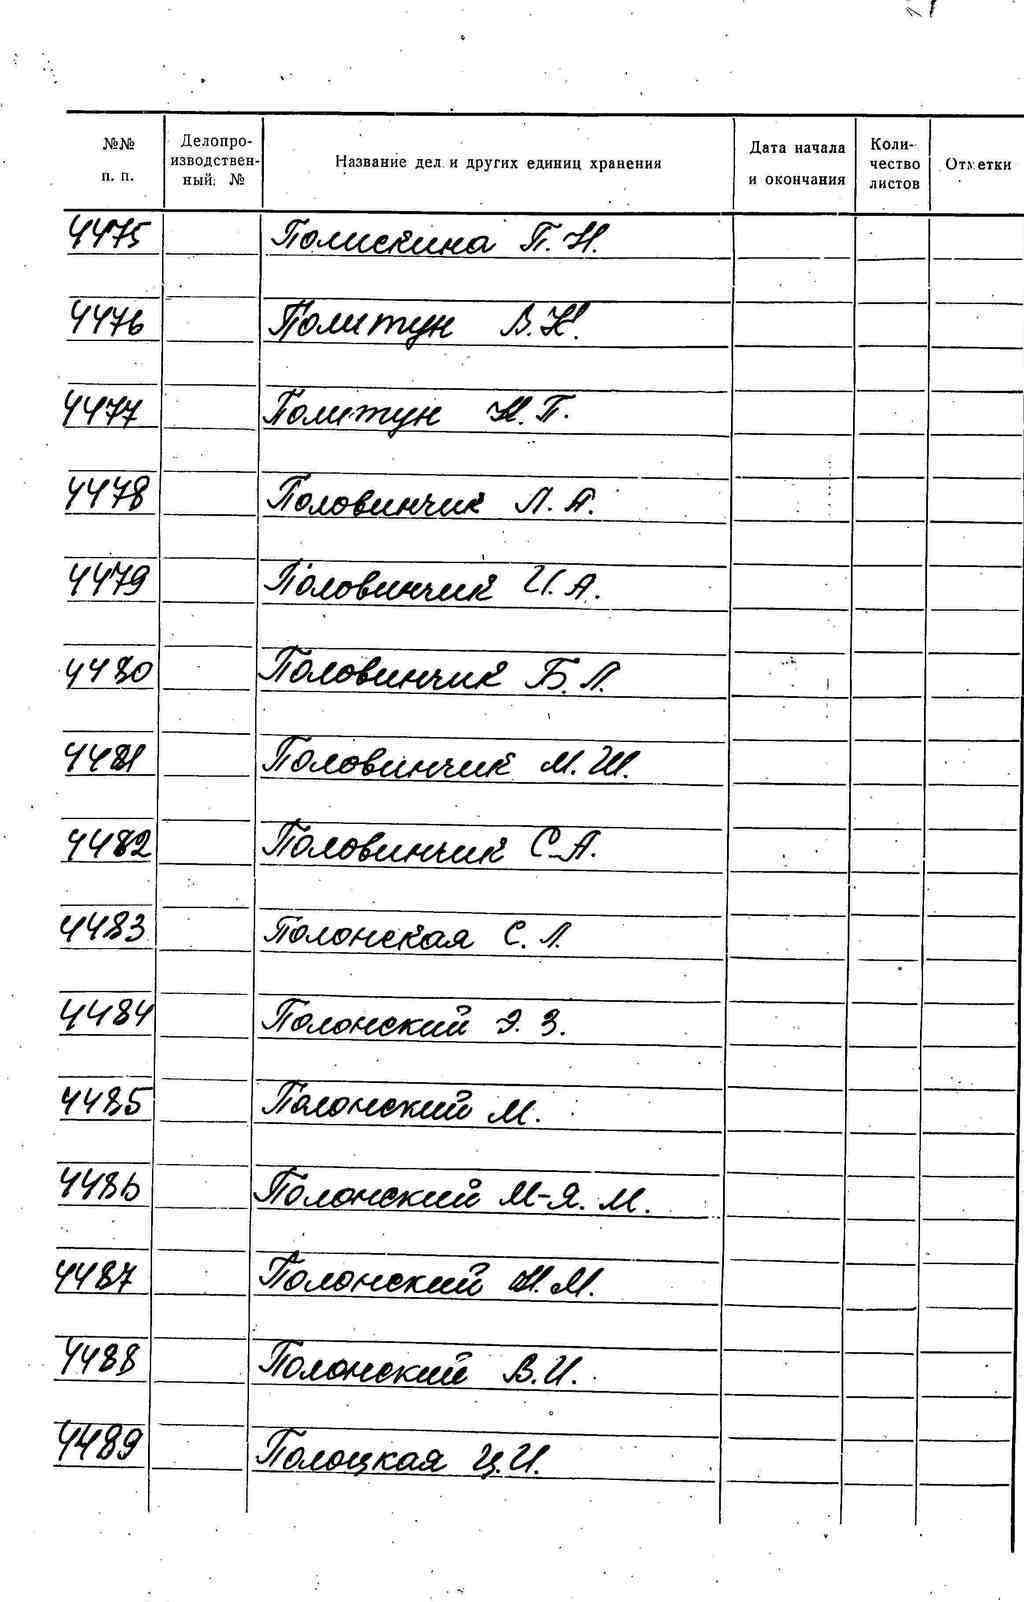 №№ п. п. Делопро- изводствен- ный № Название дел и других единиц хранения Дата начала и окончания Коли- чество листов Отметки
4475 Полискина П. Н.
4476 Политун В. Н.
4477 Политун Н. П.
4478 Половинчик Л. А.
4479 Половинчик И. А.
4480 Половинчик Б. Л.
4481 Половинчик М. Ш.
4482 Половинчик С-А.
4483 Полонская С. Л.
4484 Полонский Э. З.
4485 Полонский М.
4486 Полонский М-Я. М.
4487 Полонский Н. М.
4488 Полонский В. И.
4489 Полоцкая Ц. И.